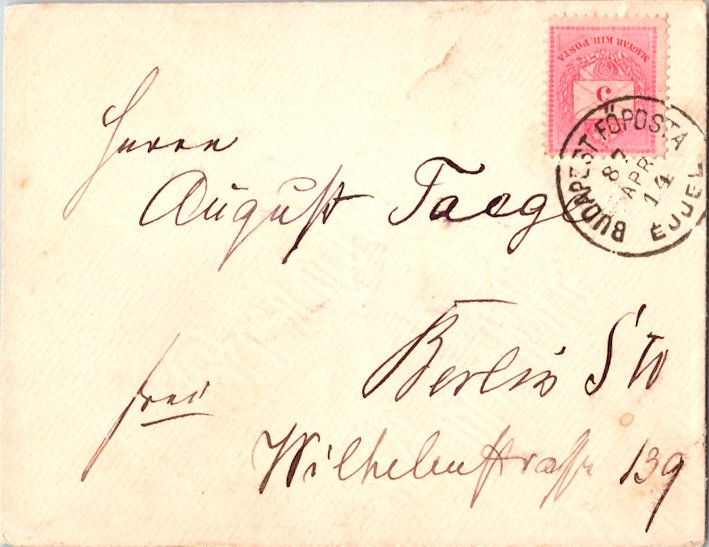 MAGYAR KIR. POSTA
5
BUDAPEST FŐPOSTA
87
APR
14
ÉJJEL
Herrn
August Taeg
Berlin SW
frei
Wilhelmstrasse 139